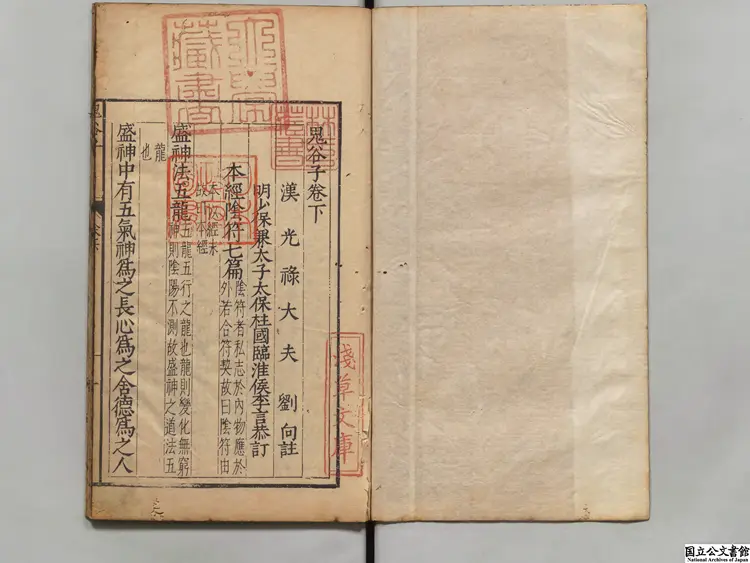 大學
藏書
鬼谷子卷下
漢光祿大夫劉向註
明少保兼太子太保柱國臨淮侯李言恭訂
本經陰符七篇
陰符者私志於內物應於
外若合符契故曰陰符由
本以經末
故曰本經
盛神法五龍
五龍五行之龍也龍則變化無窮
神則陰陽不測故盛神之道法五
龍
也
盛神中有五氣神爲之長心爲之舍德爲之人
淺草文庫
国立公文書館
National Archives of Japan